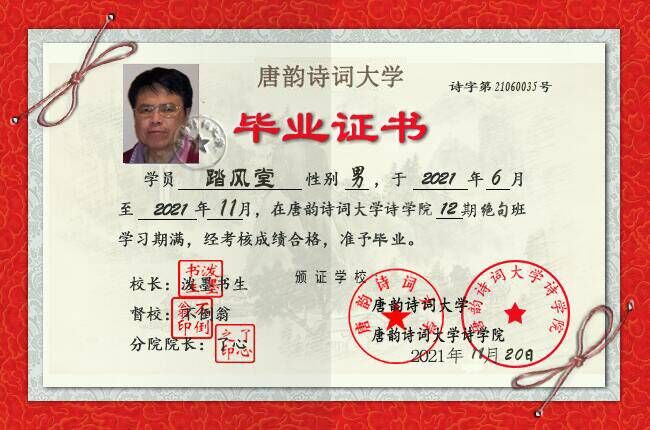 唐韵诗词大学
诗字第21060035号
毕业证书
学员 踏风堂 性别 男，于 2021 年 6 月
至 2021 年 11月，在唐韵诗词大学诗学院 12 期绝句班
学习期满，经考核成绩合格，准予毕业。
校长：泼墨书生
督校：不倒翁
分院院长：了心
泼墨书生
不倒翁印
了心之印
颁证学校：
唐韵诗词大学
唐韵诗词大学诗学院
2021年 11月 20日
唐韵诗词大学
唐韵诗词大学诗学院